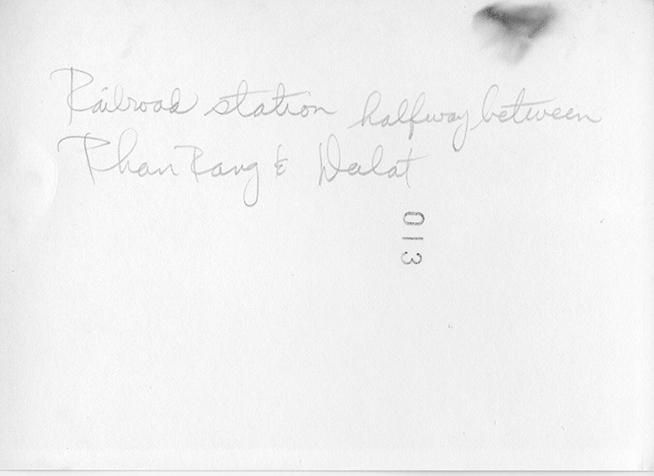 Railroad station halfway between
Phan Rang & Dalat
013